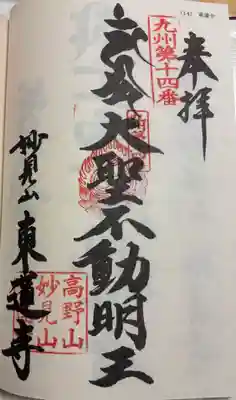 奉拝
九州第十四番
大聖不動明王
妙見山 東蓮寺
高野山
妙見山